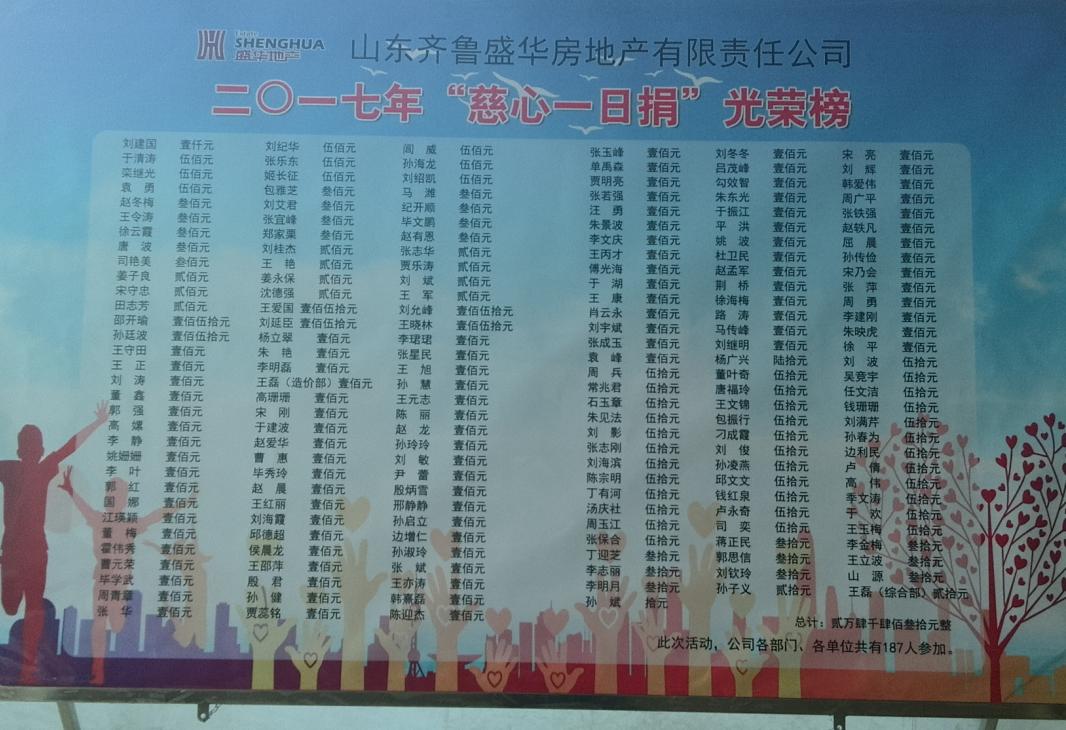 Estate
SHENGHUA
盛华地产
山东齐鲁盛华房地产有限责任公司
二〇一七年“慈心一日捐”光荣榜
刘建国 壹仟元
于清涛 伍佰元
栾继光 伍佰元
袁勇 伍佰元
赵冬梅 叁佰元
王令涛 叁佰元
徐云霞 叁佰元
唐波 叁佰元
司艳美 叁佰元
姜子良 贰佰元
宋守忠 贰佰元
田志芳 贰佰元
邵开瑜 壹佰伍拾元
孙廷波 壹佰伍拾元
王守田 壹佰元
王正 壹佰元
刘涛 壹佰元
董鑫 壹佰元
郭强 壹佰元
高嫘 壹佰元
李静 壹佰元
姚姗姗 壹佰元
李叶 壹佰元
郭红 壹佰元
国娜 壹佰元
江瑛颖 壹佰元
董梅 壹佰元
霍伟秀 壹佰元
曹元荣 壹佰元
毕学武 壹佰元
周青章 壹佰元
张华 壹佰元
刘纪华 伍佰元
张乐东 伍佰元
姬长征 伍佰元
包雅芝 叁佰元
刘艾君 叁佰元
张宜峰 叁佰元
郑家栗 叁佰元
刘桂杰 贰佰元
王艳 贰佰元
姜永保 贰佰元
沈德强 贰佰元
王爱国 壹佰伍拾元
刘延臣 壹佰伍拾元
杨立翠 壹佰元
朱艳 壹佰元
李明磊 壹佰元
王磊（造价部）壹佰元
高珊珊 壹佰元
宋刚 壹佰元
于建波 壹佰元
赵爱华 壹佰元
曹惠 壹佰元
毕秀玲 壹佰元
赵晨 壹佰元
王红丽 壹佰元
刘海霞 壹佰元
邱德超 壹佰元
侯晨龙 壹佰元
王邵萍 壹佰元
殷君 壹佰元
孙健 壹佰元
贾蕊铭 壹佰元
阎威 伍佰元
孙海龙 伍佰元
刘绍凯 伍佰元
马潍 叁佰元
纪开顺 叁佰元
毕文鹏 叁佰元
赵有恩 叁佰元
张志华 贰佰元
贾乐涛 贰佰元
刘斌 贰佰元
王军 贰佰元
刘允峰 壹佰伍拾元
王晓林 壹佰伍拾元
李珺珺 壹佰元
张星民 壹佰元
王旭 壹佰元
孙慧 壹佰元
王元志 壹佰元
陈丽 壹佰元
赵龙 壹佰元
孙玲玲 壹佰元
刘敏 壹佰元
尹蕾 壹佰元
殷炳雪 壹佰元
邢静静 壹佰元
孙启立 壹佰元
边增仁 壹佰元
孙淑玲 壹佰元
张斌 壹佰元
王亦涛 壹佰元
韩熹磊 壹佰元
陈迎杰 壹佰元
张玉峰 壹佰元
单禹森 壹佰元
贾明亮 壹佰元
张若强 壹佰元
汪勇 壹佰元
朱景波 壹佰元
李文庆 壹佰元
王丙才 壹佰元
傅光海 壹佰元
于湖 壹佰元
王康 壹佰元
肖云永 壹佰元
刘宇斌 壹佰元
张成玉 壹佰元
袁峰 壹佰元
周兵 伍拾元
常兆君 伍拾元
石玉章 伍拾元
朱见法 伍拾元
刘影 伍拾元
张志刚 伍拾元
刘海滨 伍拾元
陈宗明 伍拾元
丁有河 伍拾元
汤庆社 伍拾元
周玉江 伍拾元
张保合 伍拾元
丁迎芝 叁拾元
李志丽 叁拾元
李明月 叁拾元
孙斌 拾元
刘冬冬 壹佰元
吕茂峰 壹佰元
勾效智 壹佰元
朱东光 壹佰元
于振江 壹佰元
平洪 壹佰元
姚波 壹佰元
杜卫民 壹佰元
赵孟军 壹佰元
荆桥 壹佰元
徐海梅 壹佰元
路涛 壹佰元
马传峰 壹佰元
刘继明 壹佰元
杨广兴 陆拾元
董叶奇 伍拾元
唐福玲 伍拾元
王文锦 伍拾元
包振行 伍拾元
刁成霞 伍拾元
刘俊 伍拾元
孙凌燕 伍拾元
邱文文 伍拾元
钱红泉 伍拾元
卢永奇 伍拾元
司奕 伍拾元
蒋正民 叁拾元
郭思信 叁拾元
刘钦玲 叁拾元
孙子义 贰拾元
宋亮 壹佰元
刘辉 壹佰元
韩爱伟 壹佰元
周广平 壹佰元
张铁强 壹佰元
赵轶凡 壹佰元
屈晨 壹佰元
孙传俭 壹佰元
宋乃会 壹佰元
张萍 壹佰元
周勇 壹佰元
李建刚 壹佰元
朱映虎 壹佰元
徐平 壹佰元
刘波 伍拾元
吴竞宇 伍拾元
任文洁 伍拾元
钱珊珊 伍拾元
刘满芹 伍拾元
孙春为 伍拾元
边利民 伍拾元
卢倩 伍拾元
高伟 伍拾元
季文涛 伍拾元
于欢 伍拾元
王玉梅 伍拾元
李金梅 叁拾元
王立波 叁拾元
山源 叁拾元
王磊（综合部）贰拾元
总计：贰万肆千肆佰叁拾元整
此次活动，公司各部门、各单位共有187人参加。